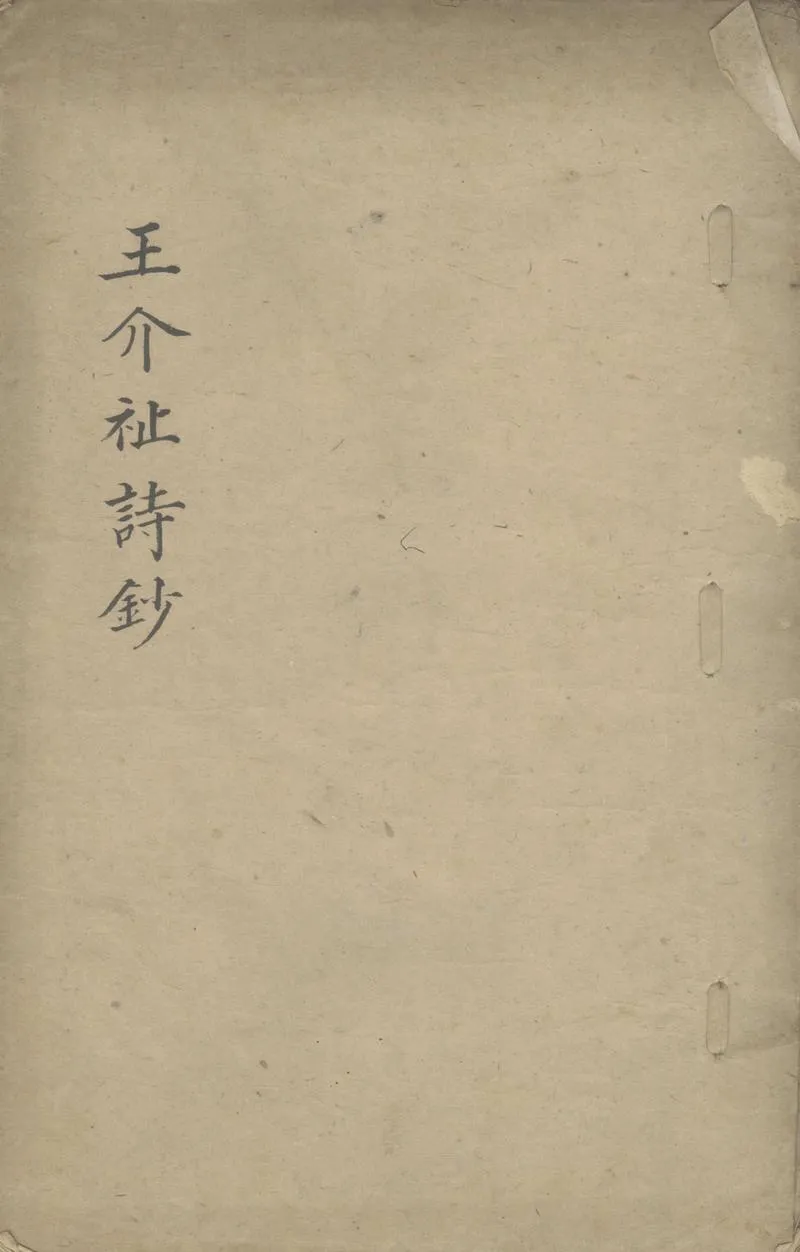 王介祉詩鈔